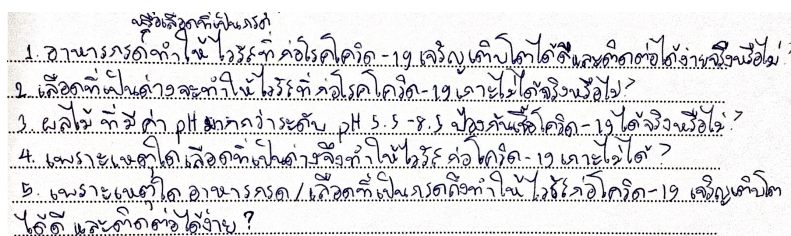 หรือเลือดที่เป็นกรด
1. อาหารกรดทำให้ไวรัสที่ก่อโรคโควิด-19 เจริญเติบโตได้ดีและติดต่อได้ง่ายจริงหรือไม่?
2. เลือดที่เป็นด่างจะทำให้ไวรัสที่ก่อโรคโควิด-19 เกาะไม่ได้จริงหรือไม่?
3. ผลไม้ ที่มี ค่า pH มากกว่าระดับ pH 5.5-8.5 ป้องกันเชื้อโควิด-19 ได้จริงหรือไม่?
4. เพราะเหตุใด เลือดที่เป็นด่างจึงทำให้ไวรัสก่อโควิด-19 เกาะไม่ได้?
5. เพราะเหตุใด อาหารกรด/เลือดที่เป็นกรดถึงทำให้ไวรัสก่อโควิด-19 เจริญเติบโต
ได้ดี และติดต่อได้ง่าย?